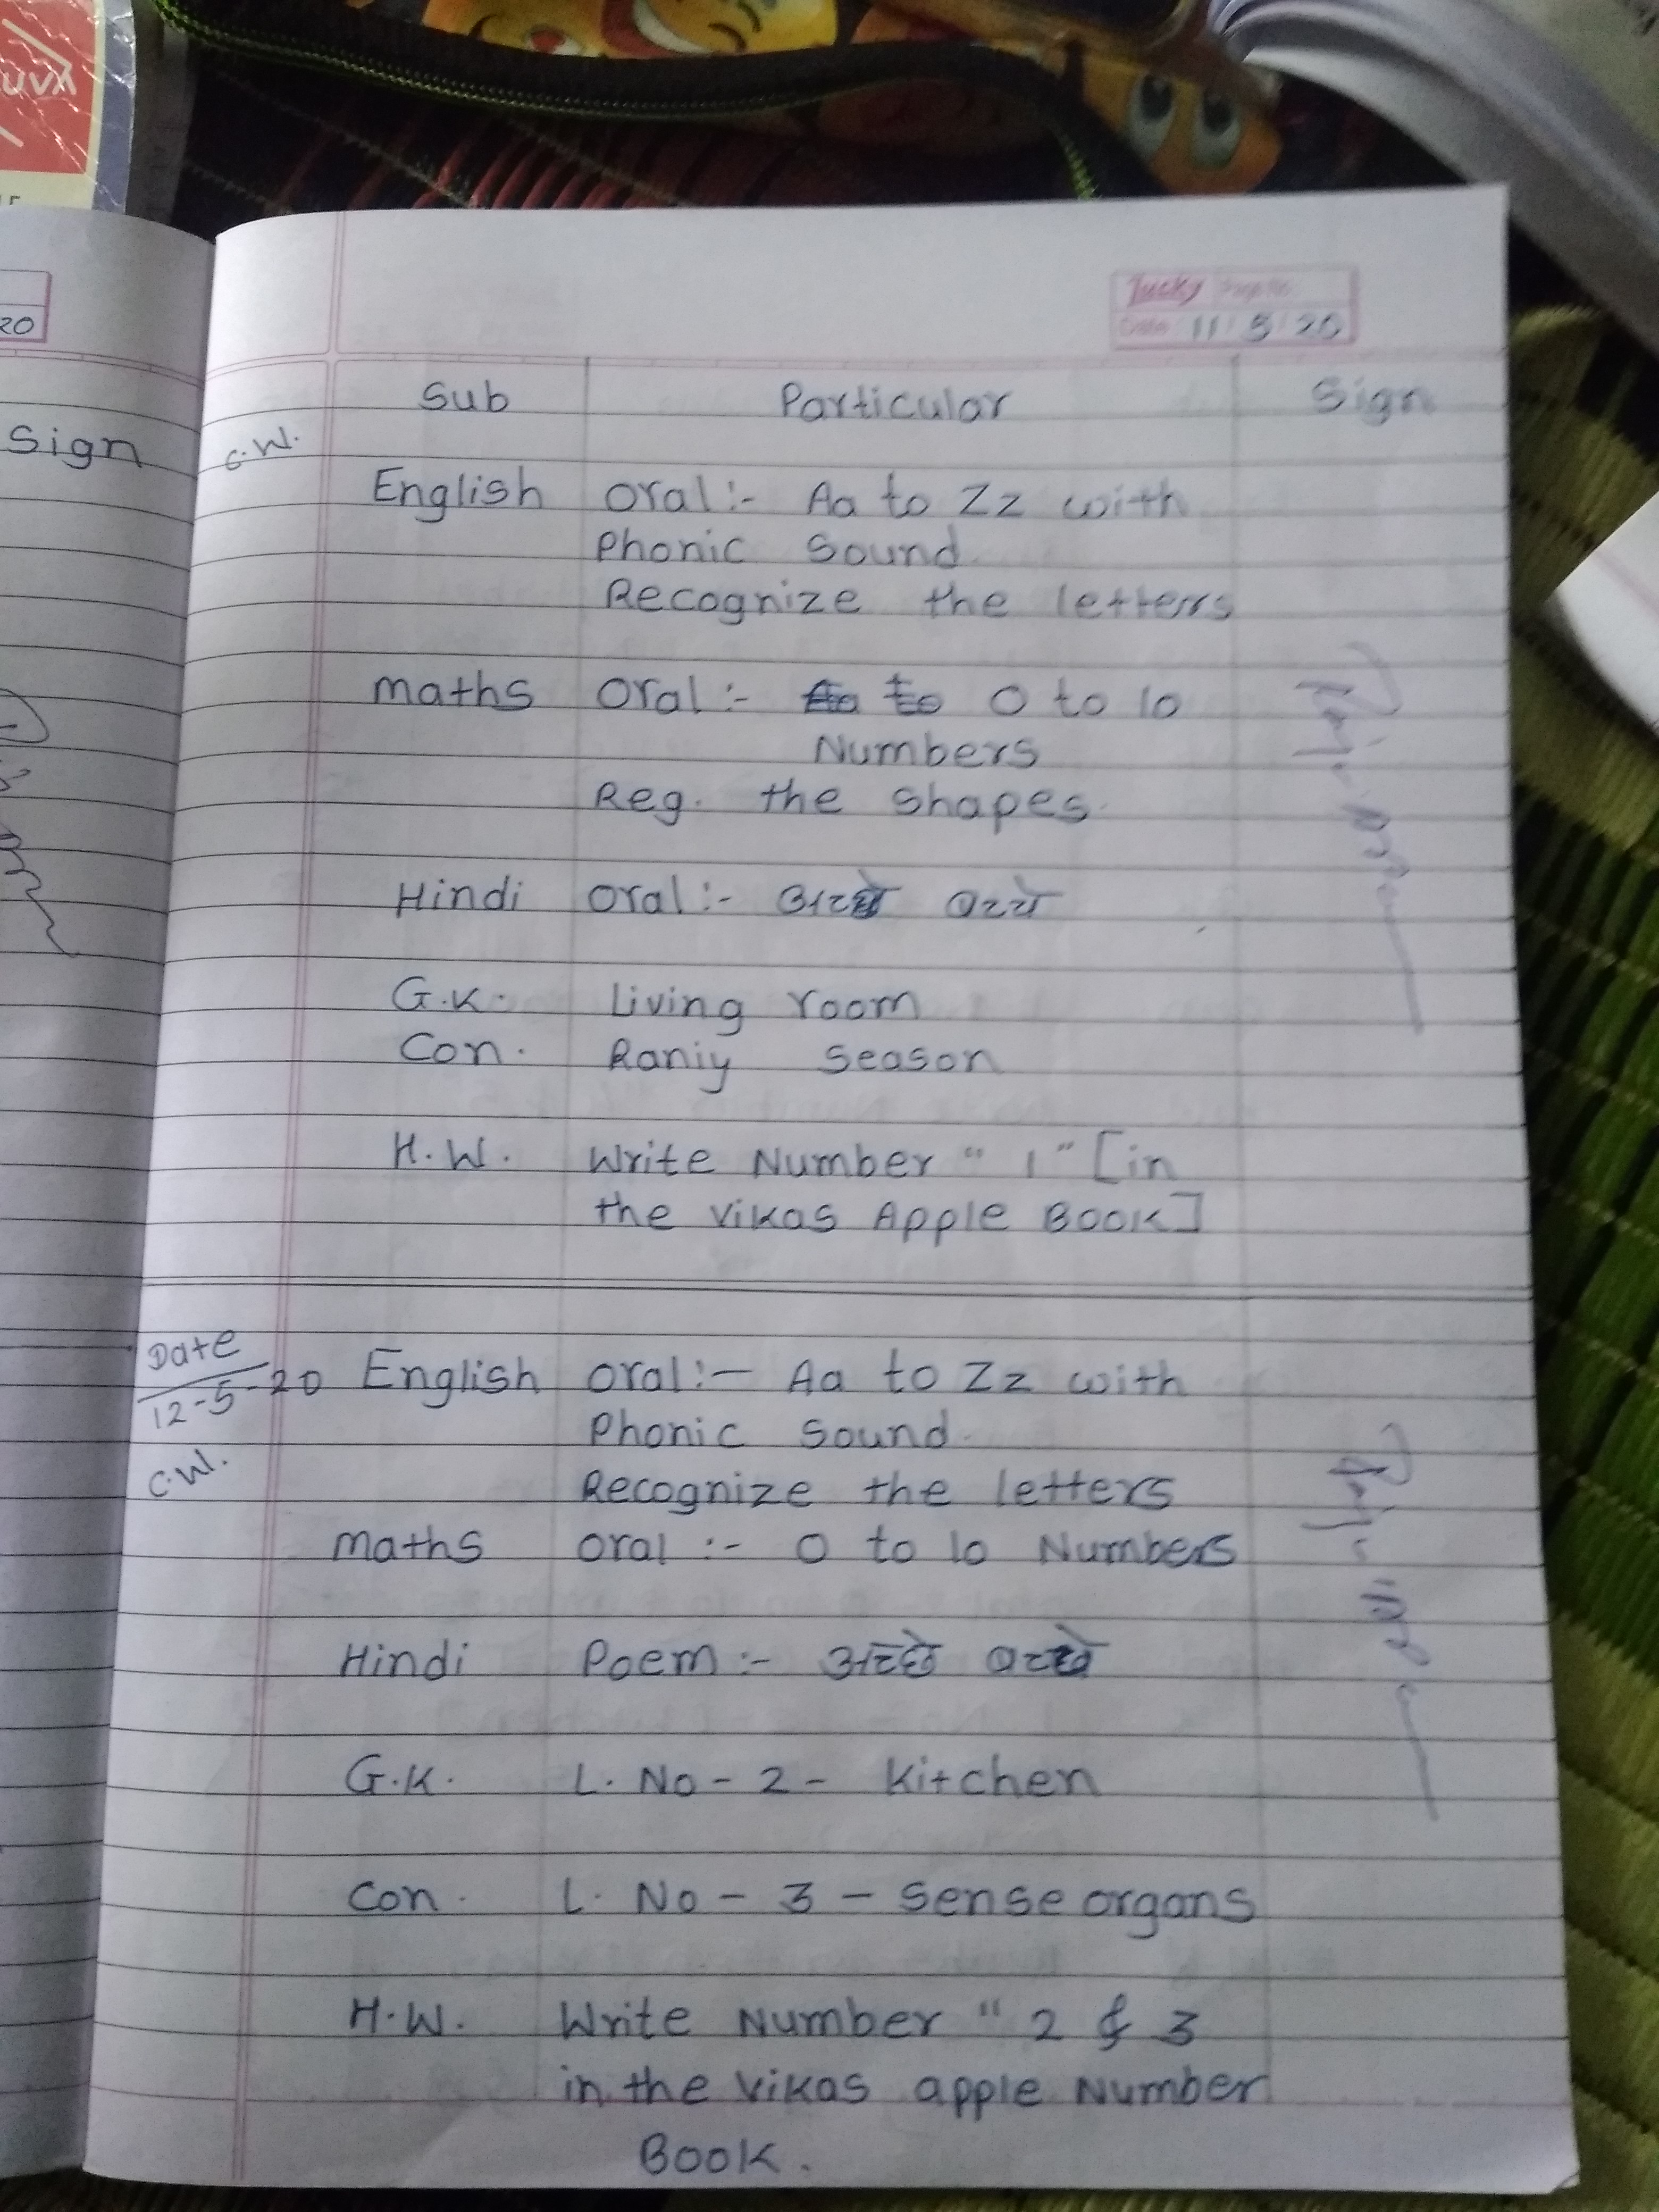 20
Sign
Lucky
Date 11/5/20
Sub Particular Sign
C.W.
English Oral :- Aa to Zz with
Phonic Sound
Recognize the letters
Maths Oral :- 0 to 10
Numbers
Reg. the Shapes.
Hindi Oral :- अच्छे बच्चे
G.K. Living room
Con. Raniy Season
H.W. Write Number " 1 " [in
the Vikas Apple BOOK]
Date
12-5-20 English Oral :- Aa to Zz with
Phonic Sound.
C.W.
Recognize the letters
Maths Oral :- 0 to 10 Numbers
Hindi Poem :- अच्छे बच्चे
G.K. L. No - 2 - Kitchen
Con. L. No - 3 - Sense organs
H.W. Write Number " 2 & 3
in the Vikas apple Number
Book.